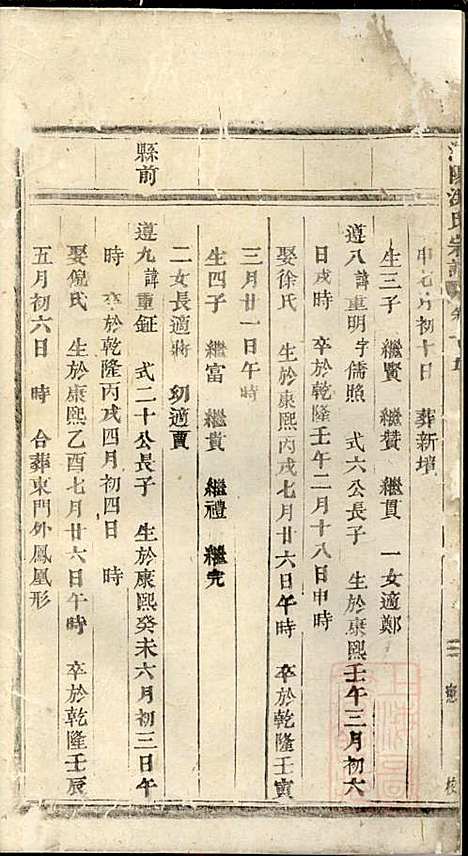 氏宗譜
七月初十日 葬新墳
生三子 繼賢 繼贊 繼貫 一女適鄭
遵八諱重明字儒照 式六公長子 生於康熙壬午三月初六
日戌時 卒於乾隆壬午二月十八日申時
娶徐氏 生於康熙丙戌七月廿六日午時 卒於乾隆壬寅
三月廿一日午時
生四子 繼富 繼貴 繼禮 繼完
二女長適蔣 幼適賈
縣前
遵九諱重鉦 式二十公長子 生於康熙癸未六月初三日午
時 卒於乾隆丙戌四月初四日 時
娶倪氏 生於康熙乙酉七月廿六日午時 卒於乾隆壬辰
五月初六日 時 合葬東門外鳳凰形